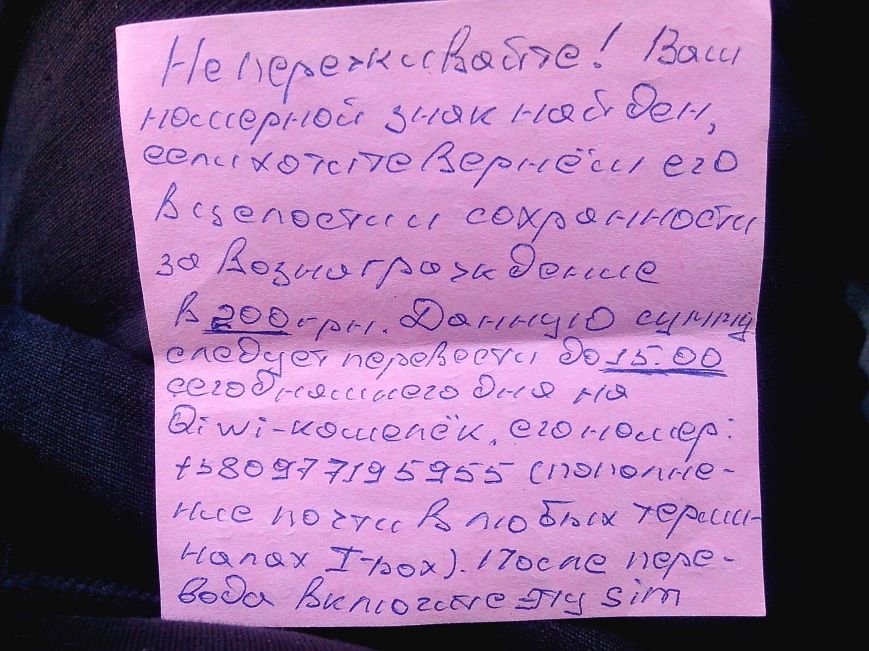 Не переживайте! Ваш
номерной знак найден,
если хотите вернём его
в целости и сохранности
за вознаграждение
в 200 грн. Данную сумму
следует перевести до 15:00
сегодняшнего дня на
Qiwi-кошелёк, его номер:
+380977195955 (пополне-
ние почти в любых терми-
налах I-box). После пере-
вода включите эту sim